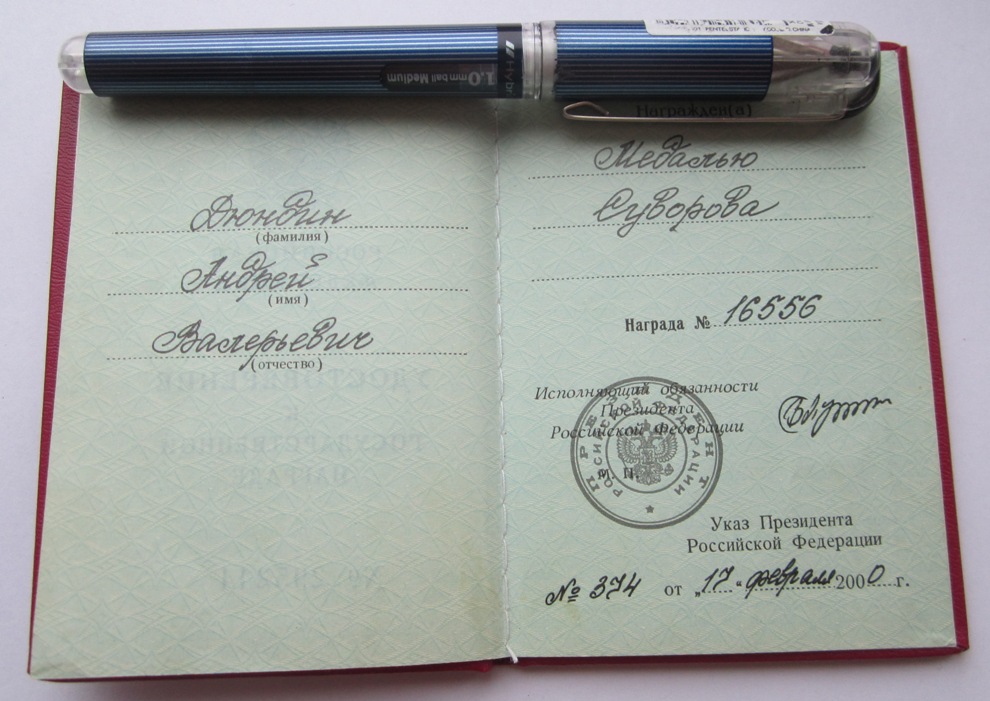 Hybr
1.0 mm ball Medium
Награжден(а)
Дюндин
(фамилия)
Андрей
(имя)
Валерьевич
(отчество)
Медалью
Суворова
Награда № 16556
Исполняющий обязанности
Президента
Российской Федерации
М. П.
ПРЕЗИДЕНТ
РОССИЙСКОЙ ФЕДЕРАЦИИ
Указ Президента
Российской Федерации
№ 374 от „17“ февраля 2000 г.
УДОСТОВЕРЕНИЕ
К
ГОСУДАРСТВЕННОЙ
НАГРАДЕ